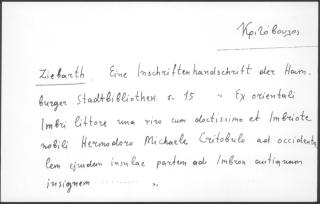 Κριτόβουλος
Ziebarth. Eine Inschriftenhandschrift der Ham
burger Stadtbibliothek s. 15 " Ex orientali
Imbri littore una viro cum doctissimo et Imbriote
nobili Hermodoro Michaele Critobulo ad occidenta
lem ejusdem insulae partem ad Imbron antiquam
insignem ......... "